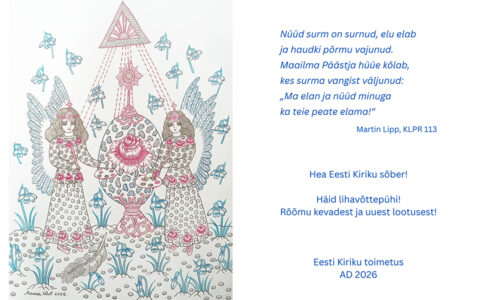 Nüüd surm on surnud, elu elab
ja haudki põrmu vajunud.
Maailma Päästja hüüe kõlab,
kes surma vangist väljunud:
„Ma elan ja nüüd minuga
ka teie peate elama!“
Martin Lipp, KLPR 113
Hea Eesti Kiriku sõber!
Häid lihavõttepühi!
Rõõmu kevadest ja uuest lootusest!
Eesti Kiriku toimetus
AD 2026